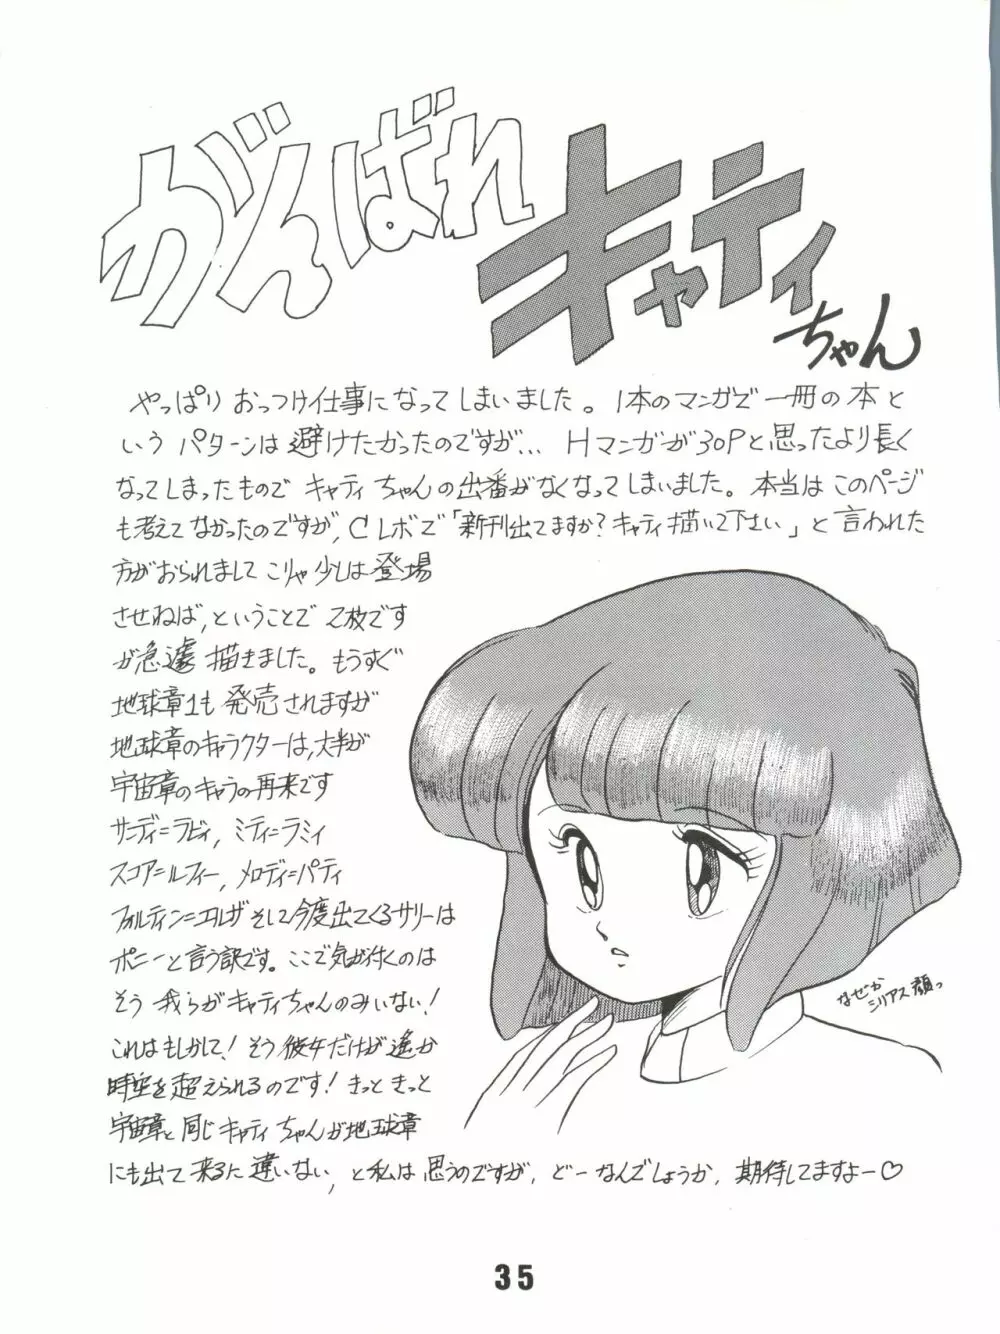 がんばれ
キャティ
ちゃん
やっぱり おっつけ仕事になってしまいました。1本のマンガで一冊の本と
いう パターンは 避けたかったのですが… Hマンガが30Pと思ったより長く
なってしまったもので キャティちゃんの出番がなくなってしまいました。本当は このページ
も考えてなかったのですが、CレボでΓ新刊出てますか?キャティ描いて下さい」と 言われた
方がおられまして こりゃ少しは登場
させねば、ということで 2枚です
が急遽 描きました。もうすぐ
地球章1も 発売されますが
地球章のキャラクターは、大半が
宇宙章のキャラの再来です
サンディ=ラビィ, ミティ=ラミィ
スコア=ルフィー, メロディ=パティ
フォルティン=エルザ そして今度出てくるサリーは
ポニーと言う訳です。ここで気が付くのは
そう 我らがキャティちゃんのみいない!
これはもしかして!そう 彼女だけが遙か
時空を超えられるのです!きっと きっと
宇宙章と 同じ キャティ ちゃんが地球章
にも出て 来るに 違いない, と私は 思うのですが, どーなんでしょうか, 期待してますよー♡
なぜか
シリアス顔っ
35